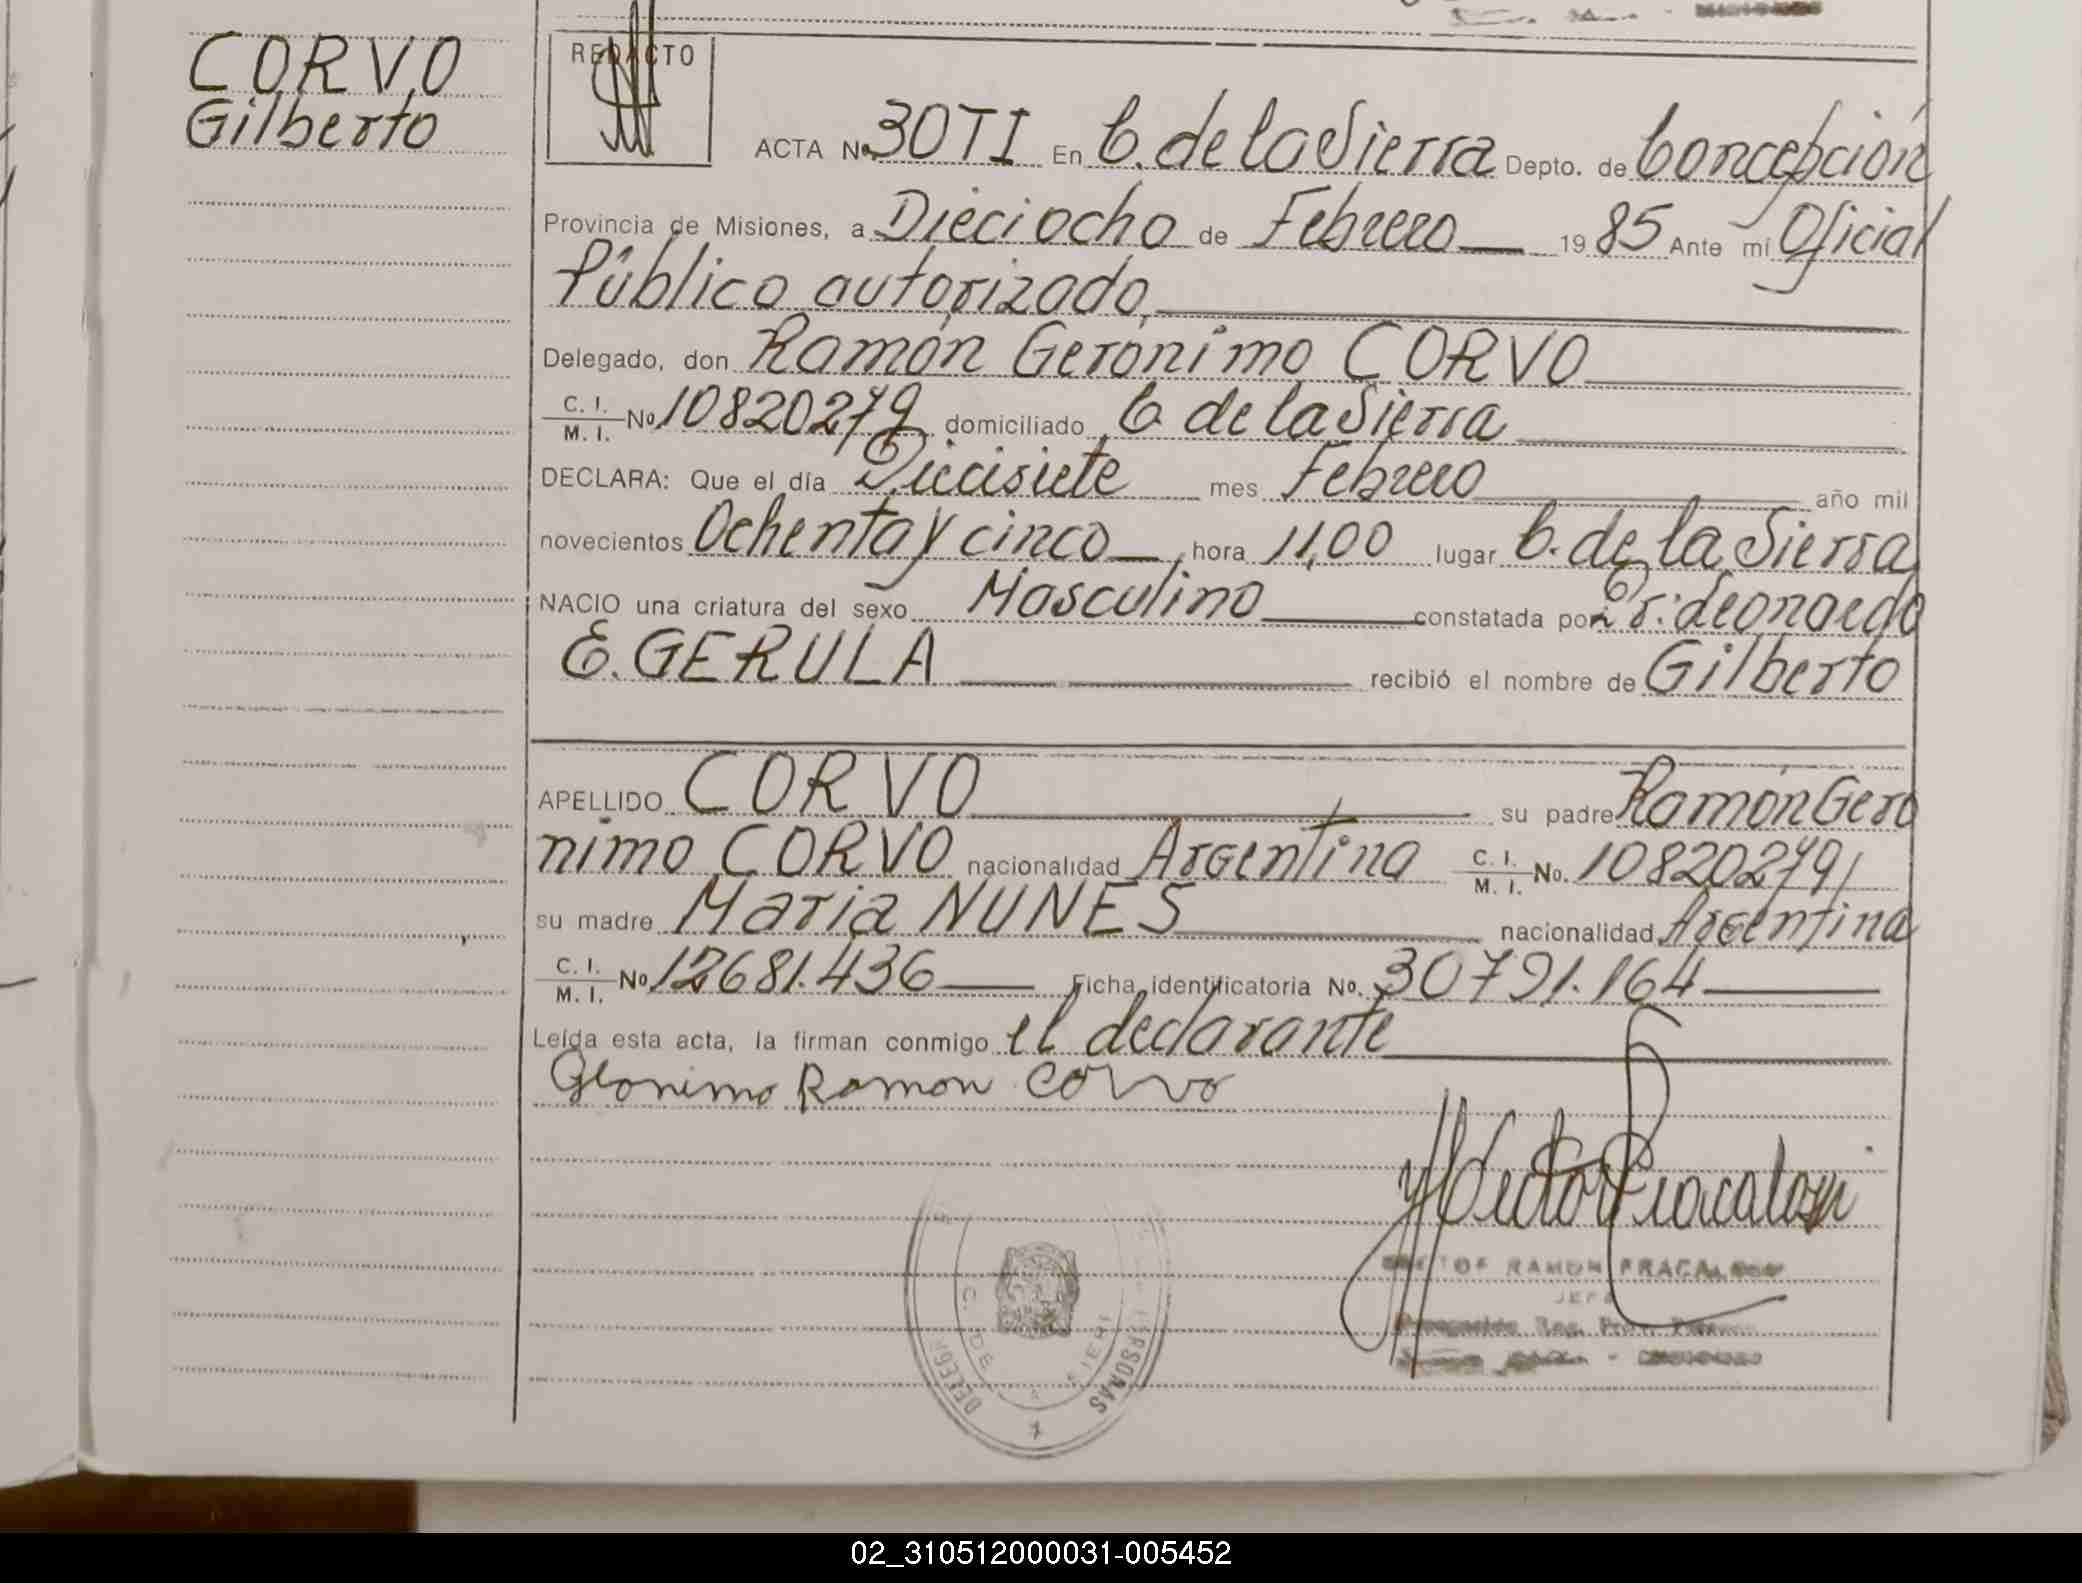 CORVO
Gilberto
REDACTO
ACTA No. 30TI En C. de la Sierra Depto. de Concepción
Provincia de Misiones, a Dieciocho de Febrero 1985 Ante mí Oficial
Público autorizado,
Delegado, don Ramón Gerónimo CORVO
C. I. M. I. No 10820279 domiciliado C. de la Sierra
DECLARA: Que el día Diecisiete mes Febrero año mil
novecientos Ochenta y cinco hora 11,00 lugar C. de la Sierra
NACIO una criatura del sexo Masculino constatada por Dr. Leonardo
E. GERULA recibió el nombre de Gilberto
APELLIDO CORVO su padre Ramón Gero
nimo CORVO nacionalidad Argentina C. I. M. I. No. 10820279
su madre Maria NUNES nacionalidad Argentina
C. I. M. I. No 12681.436 Ficha identificatoria No. 30791.164
Leída esta acta, la firman conmigo el declarante
Geronimo Ramon Corvo
RAMON FRACALOSSI
JEFE
DELEG
C. DE
SIERR
PERSONAS
02_310512000031-005452